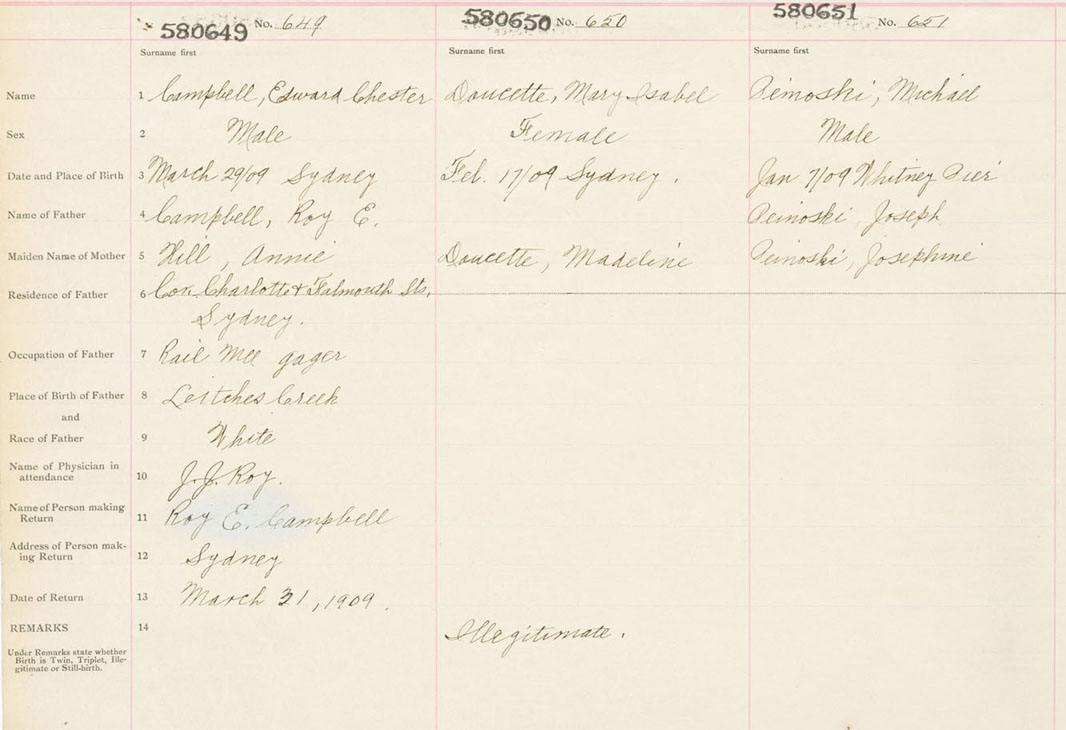 580649 No. 649
580650 No. 650
580651 No. 651
Surname first
Surname first
Surname first
Name 1 Campbell, Edward Chester Doucette, Mary Isabel Peinoski, Michael
Sex 2 Male Female Male
Date and Place of Birth 3 March 29/09 Sydney Feb. 17/09 Sydney. Jan 7/09 Whitney Pier
Name of Father 4 Campbell, Roy E. Peinoski, Joseph
Maiden Name of Mother 5 Hill, Annie Doucette, Madeline Peinoski, Josephine
Residence of Father 6 Cor. Charlotte & Falmouth Sts.
Sydney.
Occupation of Father 7 Rail Mill gager
Place of Birth of Father 8 Leitches Creek
and
Race of Father 9 White
Name of Physician in
attendance 10 J.J. Roy.
Name of Person making
Return 11 Roy E. Campbell
Address of Person mak-
ing Return 12 Sydney
Date of Return 13 March 31, 1909.
REMARKS 14 Illegitimate.
Under Remarks state whether
Birth is Twin, Triplet, Ille-
gitimate or Still-birth.